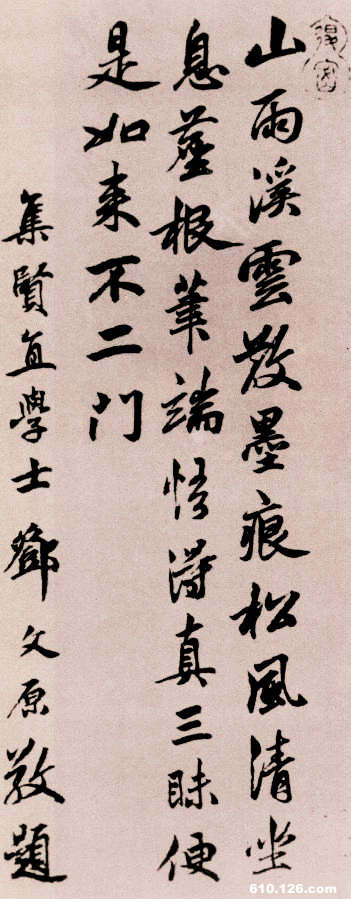 山雨溪雲散墨痕松風清坐
息塵根筆端悟得真三昧便
是如來不二門
集賢直學士鄧文原敬題
610.126.com